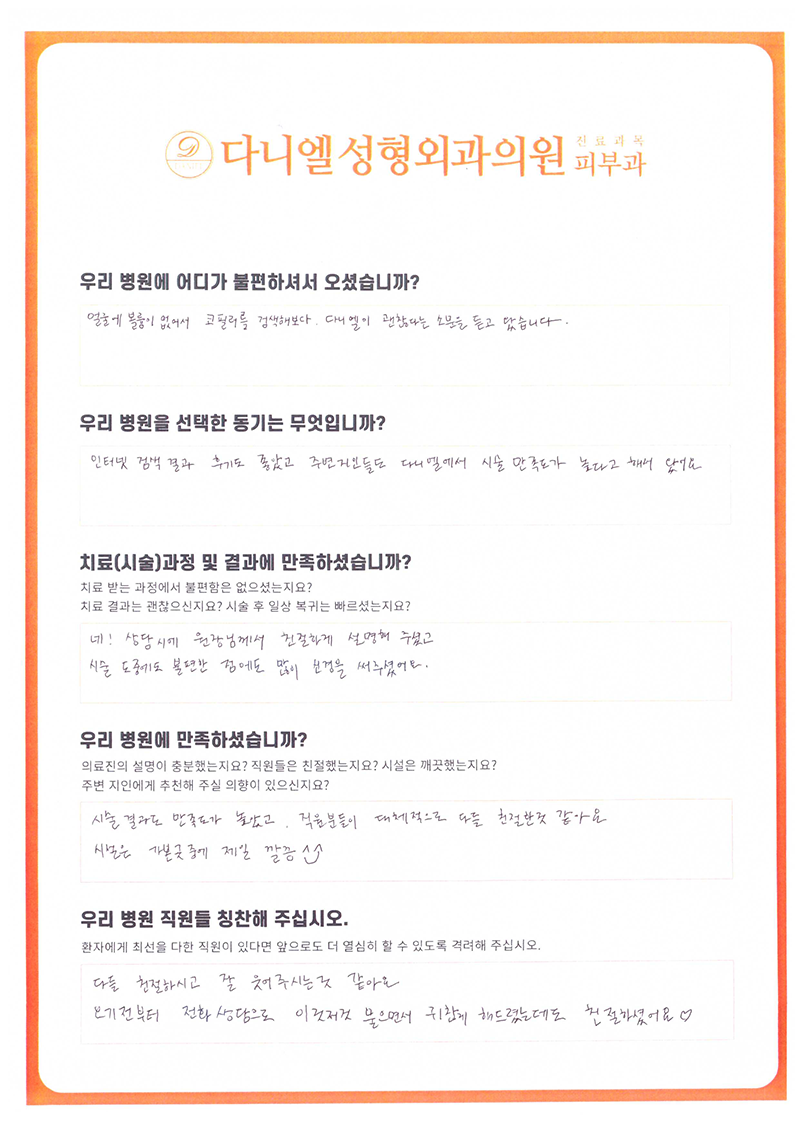 다니엘성형외과의원
진료과목
피부과
우리 병원에 어디가 불편하셔서 오셨습니까?
얼굴에 볼륨이 없어서 코필러를 검색해보다. 다니엘이 괜찮다는 소문을 듣고 왔습니다.
우리 병원을 선택한 동기는 무엇입니까?
인터넷 검색 결과 후기도 좋았고 주변지인들도 다니엘에서 시술 만족도가 높다고 해서 왔어요
치료(시술)과정 및 결과에 만족하셨습니까?
치료 받는 과정에서 불편함은 없으셨는지요?
치료 결과는 괜찮으신지요? 시술 후 일상 복귀는 빠르셨는지요?
네! 상담시에 원장님께서 친절하게 설명해 주셨고
시술 도중에도 불편한 점에도 많이 신경을 써주셨어요.
우리 병원에 만족하셨습니까?
의료진의 설명이 충분했는지요? 직원들은 친절했는지요? 시설은 깨끗했는지요?
주변 지인에게 추천해 주실 의향이 있으신지요?
시술결과도 만족도가 높았고. 직원분들이 대체적으로 다들 친절한것 같아요
시설은 가본곳중에 제일 깔끔
우리 병원 직원들 칭찬해 주십시오.
환자에게 최선을 다한 직원이 있다면 앞으로도 더 열심히 할 수 있도록 격려해 주십시오.
다들 친절하시고 잘 웃어주시는것 같아요
오기전부터 전화상담으로 이것저것 물으면서 귀찮게 해드렸는데도 친절하셨어요♡